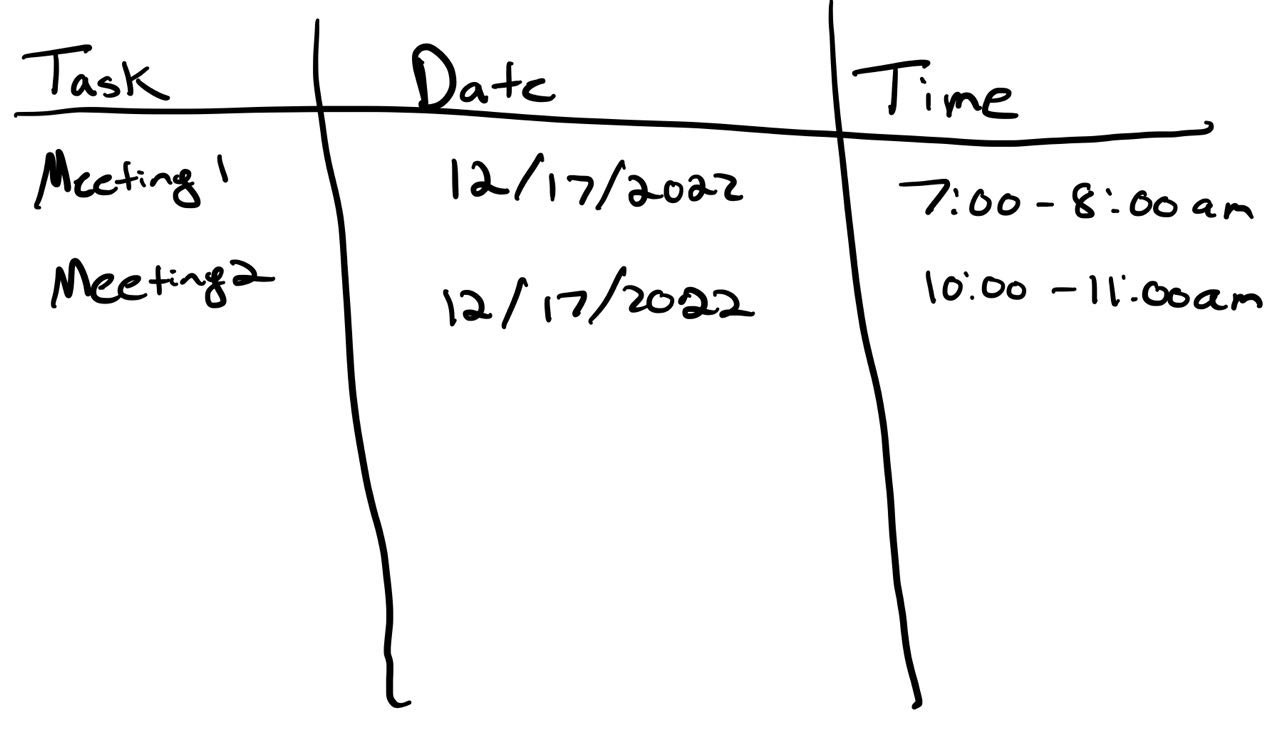 Task Date Time
Meeting 1 12/17/2022 7:00 - 8:00 am
Meeting 2 12/17/2022 10:00 - 11:00 am